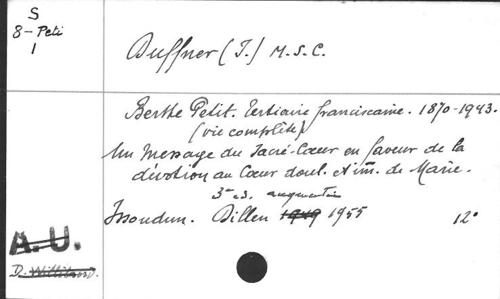 S
8-Peti
1
Duffner (J.) M.S.C.
Berthe Petit. Tertiaire franciscaine. 1870-1943.
(vie complète)
Un Message du Sacré-Cœur en faveur de la
dévotion au Cœur doul. et im. de Marie.
3e éd. augmentée
Issoudun. Dillen 1949 1955 12°
A.U.
D. Willibrord.